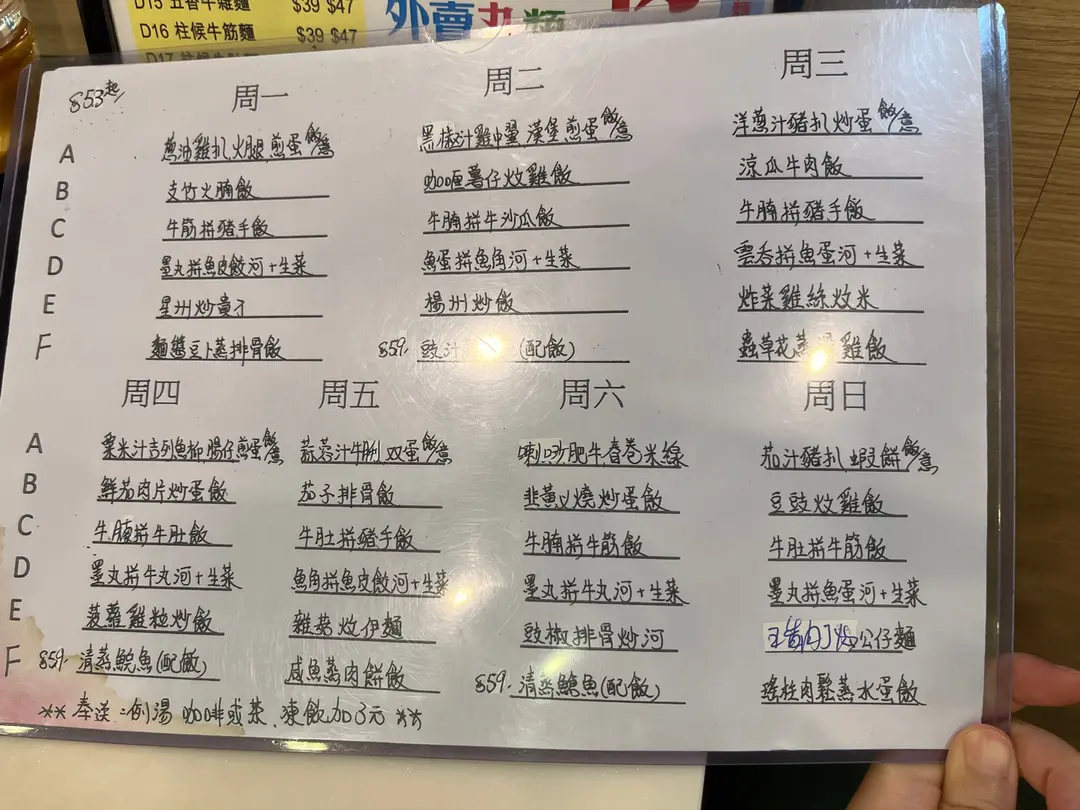 D15 五香牛雜麵 $39 $47
D16 柱候牛筋麵 $39 $47
D17
外賣丸類
$53起
周一
A 蔥油雞扒火腿煎蛋飯/意
B 支竹火腩飯
C 牛筋拼豬手飯
D 墨丸拼魚皮餃河+生菜
E 星州炒貴刁
F 麵醬豆卜蒸排骨飯
周二
黑椒汁雞中翼漢堡煎蛋飯/意
咖喱薯仔炆雞飯
牛腩拼牛沙瓜飯
魚蛋拼魚角河+生菜
楊州炒飯
$59. 豉汁 (配飯)
周三
洋蔥汁豬扒炒蛋飯/意
涼瓜牛肉飯
牛腩拼豬手飯
雲吞拼魚蛋河+生菜
炸菜雞絲炆米
蟲草花蒸滑雞飯
周四
A 粟米汁吉列魚柳腸仔煎蛋飯/意
B 鮮茄肉片炒蛋飯
C 牛腩拼牛肚飯
D 墨丸拼牛丸河+生菜
E 菠蘿雞粒炒飯
F $59. 清蒸鯇魚(配飯)
周五
蒜蓉汁牛脷双蛋飯/意
茄子排骨飯
牛肚拼豬手飯
魚角拼魚皮餃河+生菜
雜菇炆伊麵
咸魚蒸肉餅飯
周六
喇沙肥牛春卷米線
韭黃义燒炒蛋飯
牛腩拼牛筋飯
墨丸拼牛丸河+生菜
豉椒排骨炒河
$59. 清蒸鯇魚(配飯)
周日
茄汁豬扒蝦餅飯/意
豆豉炆雞飯
牛肚拼牛筋飯
墨丸拼魚蛋河+生菜
五香肉丁炒公仔麵
瑤柱肉鬆蒸水蛋飯
** 奉送:例湯 咖啡或茶.凍飲加3元 **